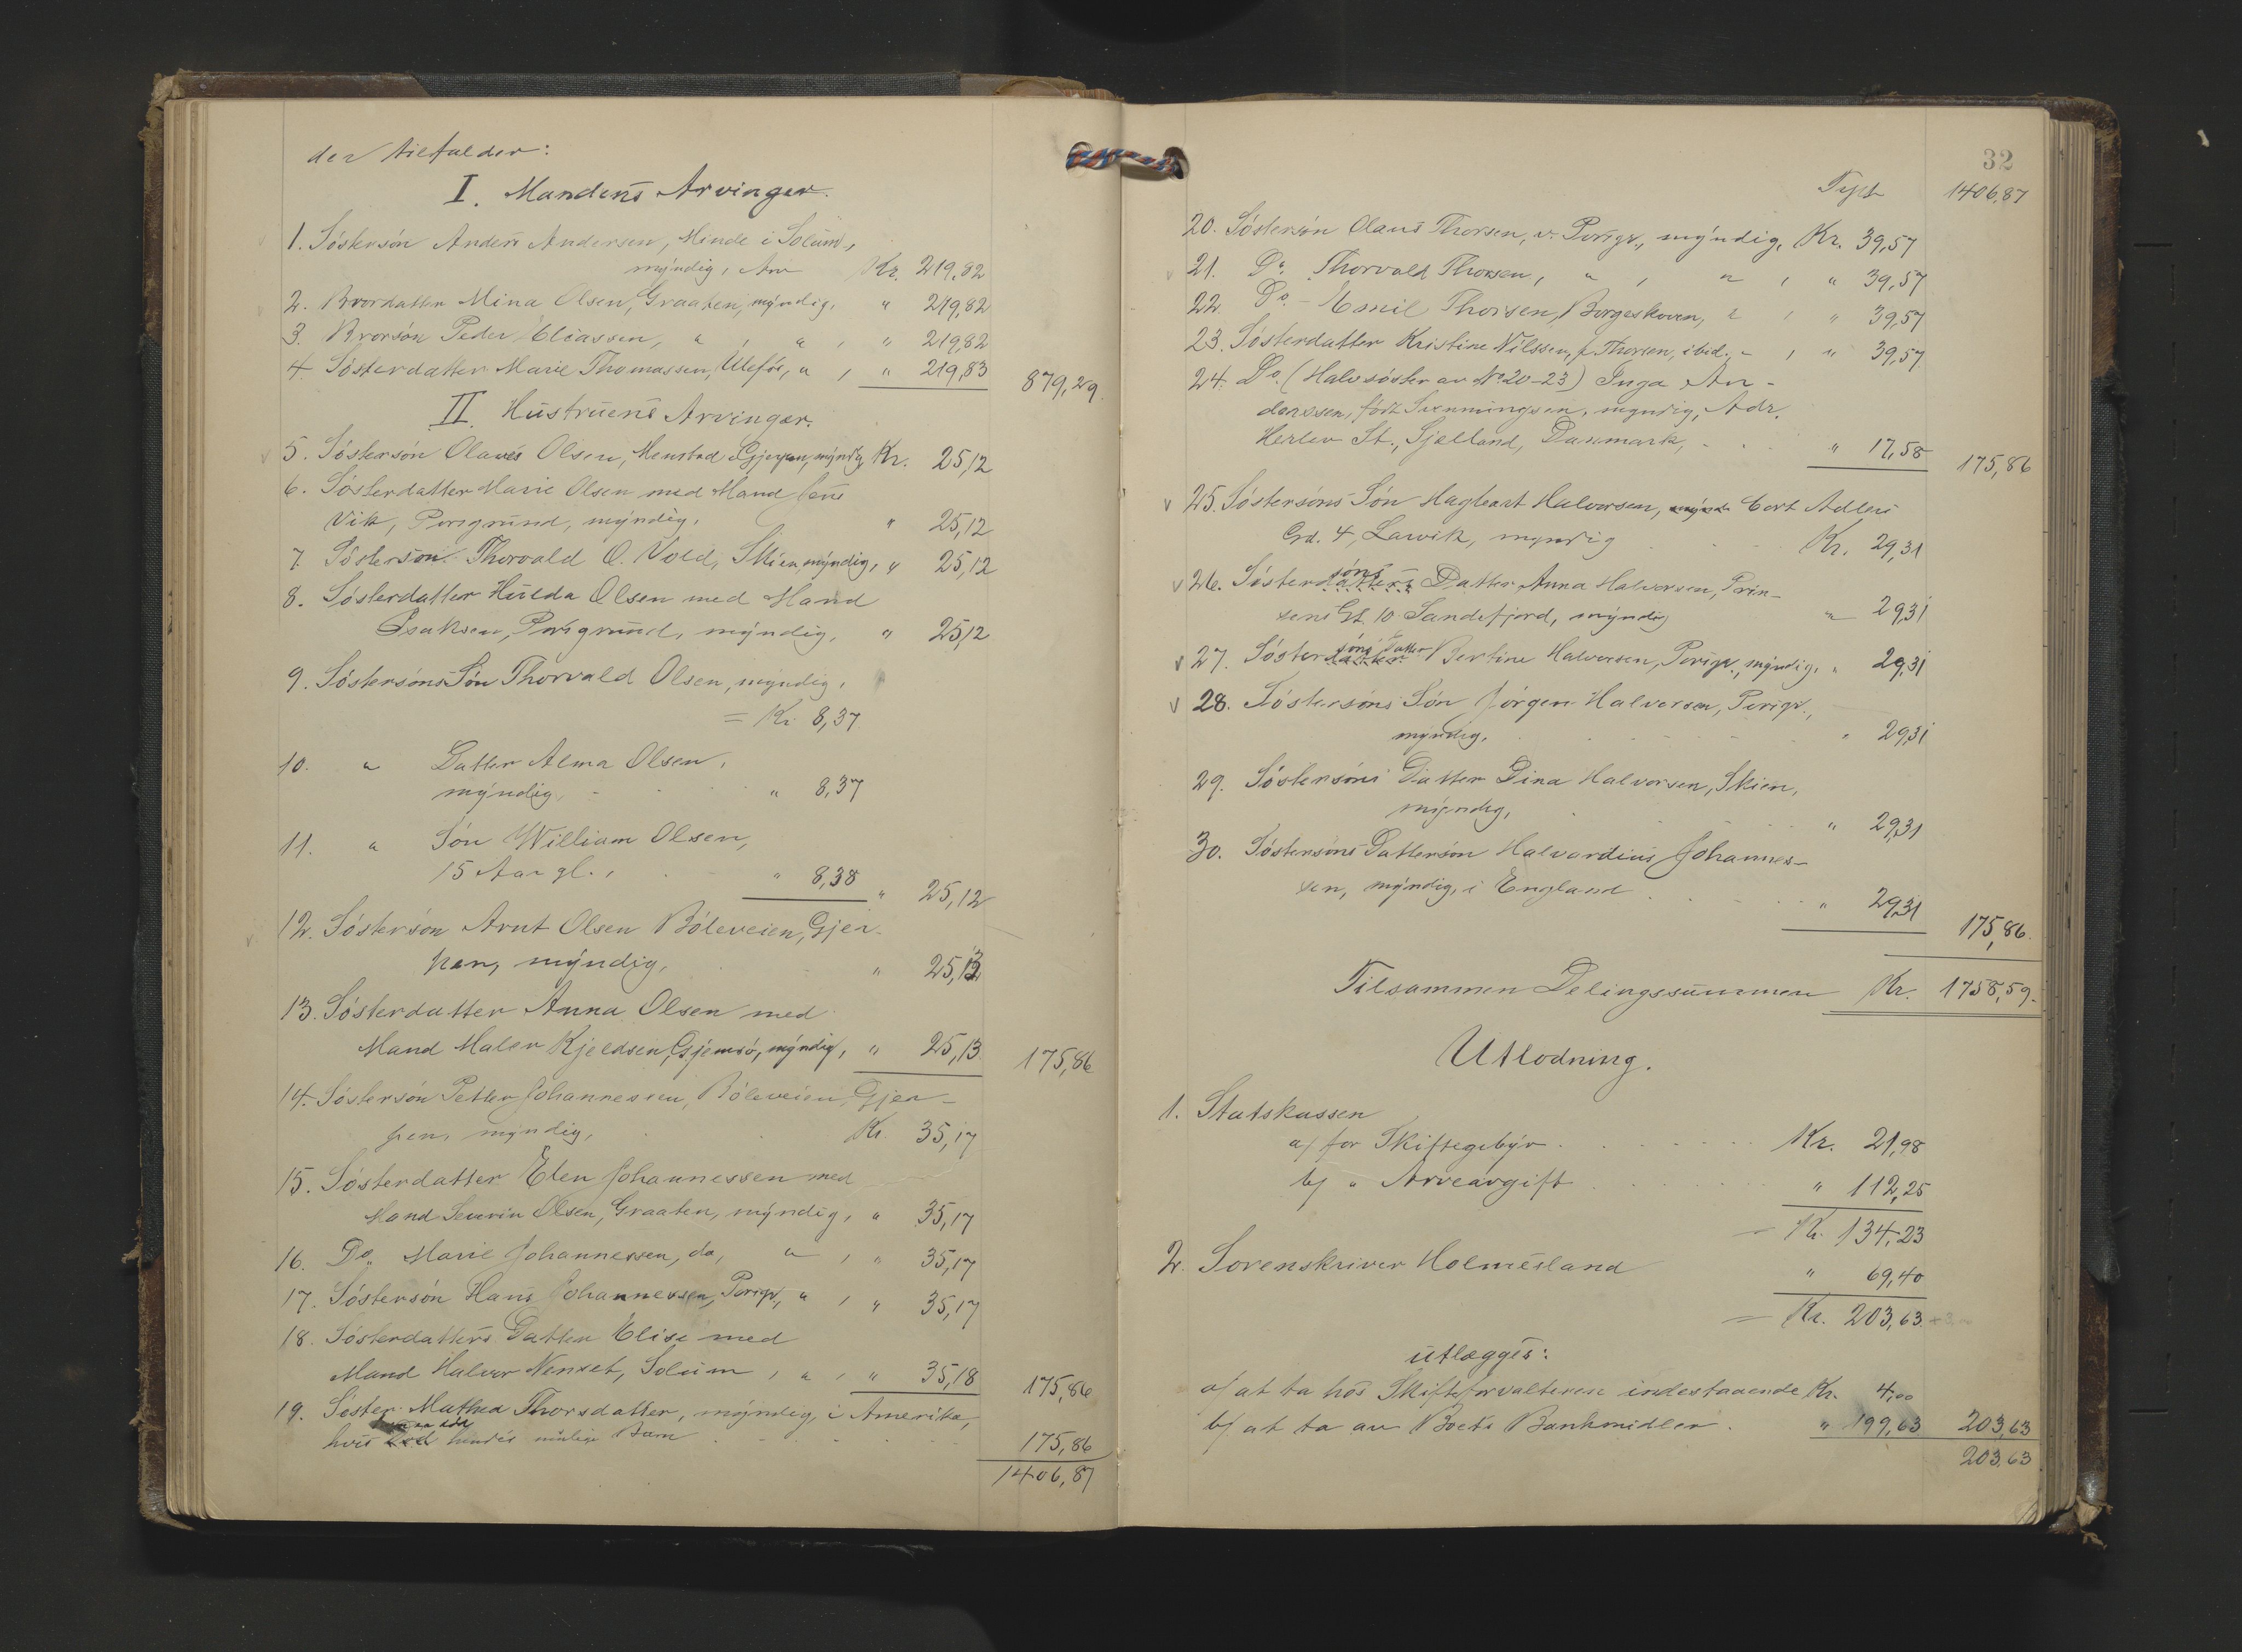 der tilfalder:
I. Mandens Arvinger.
1. Søstersøn Anders Andersen, Minde i Solum,
myndig, Arv Kr. 219,82
2. Brordatter Mina Olsen, Graaten, myndig, " 219,82
3. Brorsøn Peder Eliassen, " , " , " 219,82
4. Søsterdatter Marie Thomassen, Ulefos, " , " 219,83 879,29.
II. Hustruens Arvinger.
5. Søstersøn Olaves Olsen, Menstad i Gjerpen, myndig Kr. 25,12
6. Søsterdatter Marie Olsen med Mand Jens
Vik, Porsgrund, myndig, " 25,12
7. Søstersøn Thorvald O. Vold, Skien, myndig, " 25,12
8. Søsterdatter Hulda Olsen med Mand
Isaksen, Porsgrund, myndig, " 25,12
9. Søstersøns Søn Thorvald Olsen, myndig,
= Kr. 8,37
10. " Datter Alma Olsen,
myndig, " 8,37
11. " Søn William Olsen,
15 Aar gl., " 8,38 " 25,12
12. Søstersøn Arnt Olsen Bøleveien, Gjer-
pen, myndig, " 25,13
13. Søsterdatter Anna Olsen med
Mand Maler Kjeldsen, Gjemsø, myndig, " 25,13 175,86
14. Søstersøn Petter Johannessen, Bøleveien, Gjer-
pen, myndig, Kr. 35,17
15. Søsterdatter Elen Johannessen med
Mand Severin Olsen, Graaten, myndig, " 35,17
16. Do. Marie Johannessen, do, " , " 35,17
17. Søstersøn Hans Johannessen, Porsgr., " , " 35,17
18. Søsterdatters Datter Elise med
Mand Halvor Nenset, Solum, " , " 35,18 175,86
19. Søster Mathea Thorsdatter, myndig, i Amerika,
hvis død hendes mulige Barn 175,86
1406,87
32
Flyt 1406,87
20. Søstersøn Olaus Thorsen, v. Porsgr., myndig, Kr. 39,57
21. Do. Thorvald Thorsen, " , " , " 39,57
22. Do. - Emil Thorsen, Borgeskoven, " , " 39,57
23. Søsterdatter Kristine Nilssen, f. Thorsen, ibid., " , " 39,57
24. Do. (Halvsøster av No 20-23) Inga An-
derssen, født Svenningsen, myndig, Adr.
Herlev St., Sjelland, Danmark, " 17,58 175,86
25. Søstersøns Søn Hagbart Halvorsen, Cort Adlers
Gd. 4, Larvik, myndig Kr. 29,31
26. Søstersøns Datter Anna Halvorsen, Prin-
sens Gt. 10 Sandefjord, myndig " 29,31
27. Søstersøns Datter Bertine Halvorsen, Porsgr., myndig, " 29,31
28. Søstersøns Søn Jørgen Halvorsen, Porsgr.,
myndig, " 29,31
29. Søstersøns Datter Dina Halvorsen, Skien,
myndig, " 29,31
30. Søstersøns Dattersøn Halvardius Johannes-
sen, myndig, i England " 29,31 175,86.
Tilsammen Delingssummen Kr. 1758,59.
Utlodning.
1. Statskassen
a/ for Skiftegebyr Kr. 21,98
b/ " Arveavgift " 112,25
= Kr. 134,23
2. Sorenskriver Holmesland " 69,40
= Kr. 203,63
utlægges:
a/ at ta hos Skifteforvalteren indestaaende Kr. 4,00
b/ at ta av Boets Bankmidler " 199,63 203,63
203,63